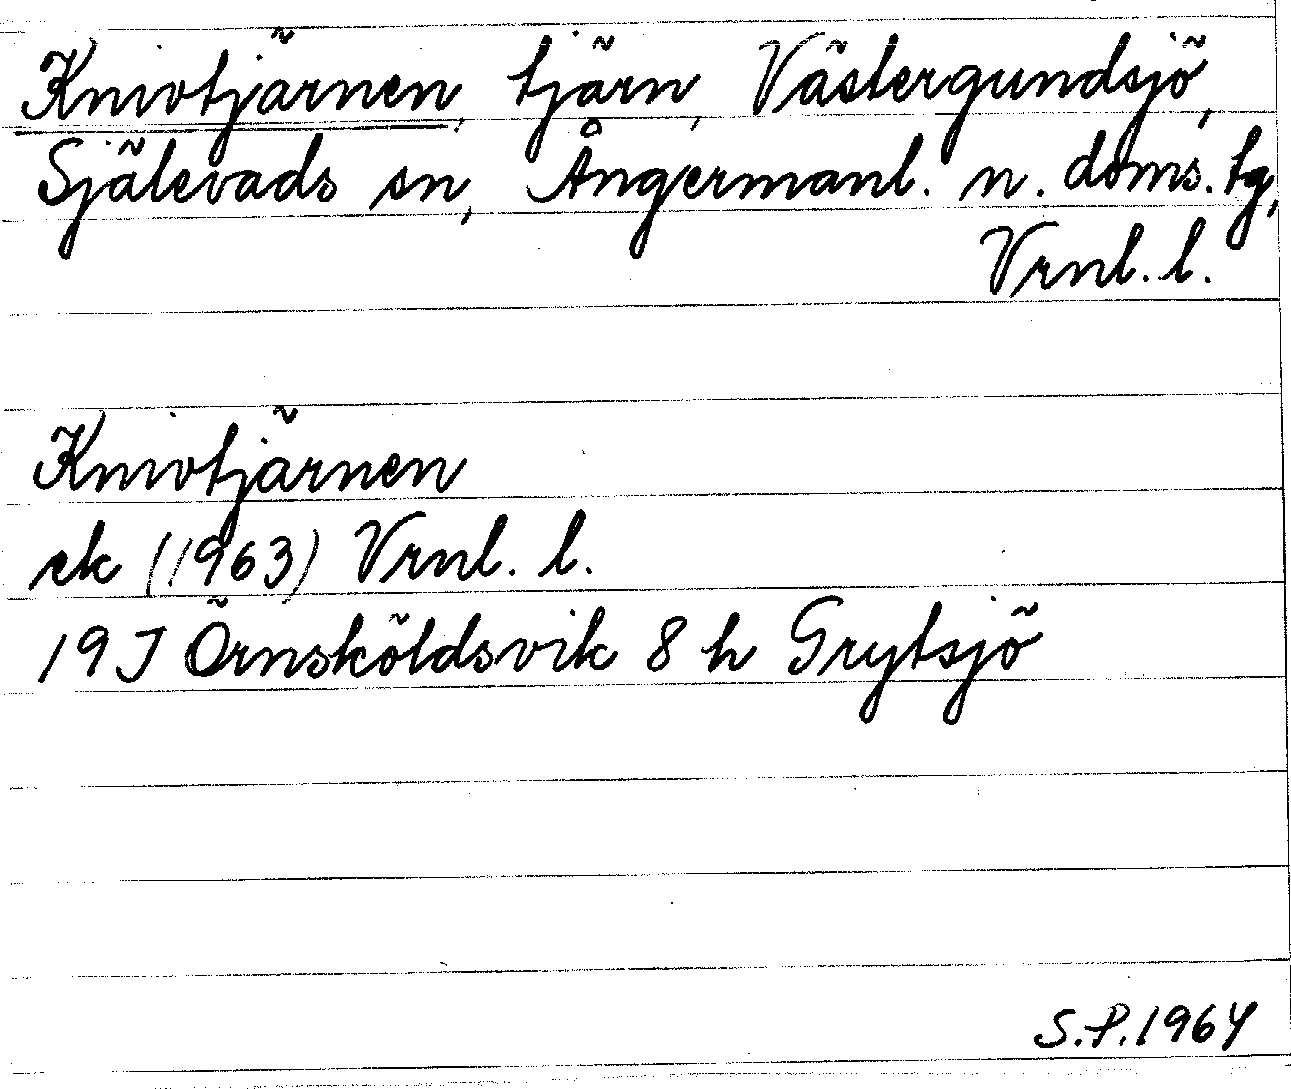 Knivtjärnen, tjärn, Västergundsjö,
Själevads sn, Ångermanl. n. doms. tg,
Vrnl. l.
Knivtjärnen
ek (1963) Vrnl. l.
19J Örnsköldsvik 8 h Grytsjö
S.P.1964